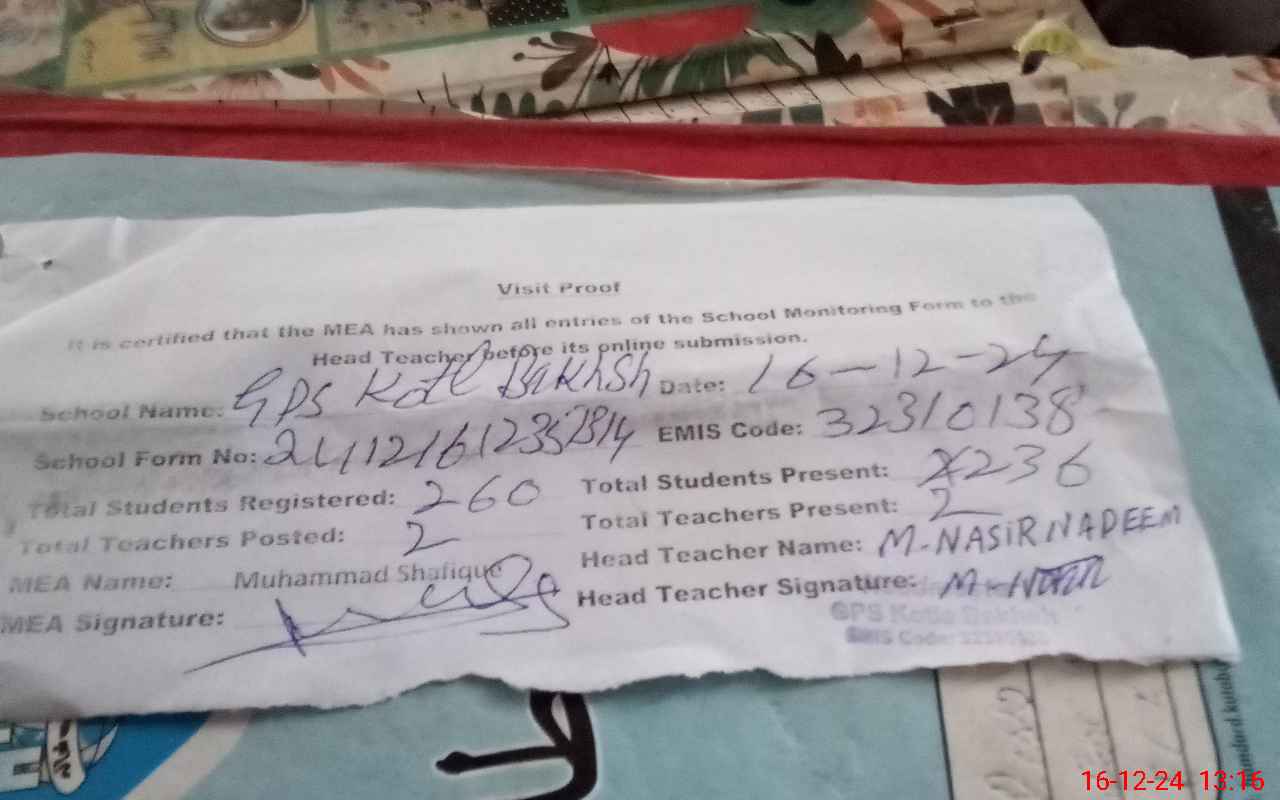 Visit Proof
It is certified that the MEA has shown all entries of the School Monitoring Form to the
Head Teacher before its online submission.
School Name: GPS Kotl Bakhsh Date: 16-12-24
School Form No: EMIS Code: 32310138
Total Students Registered: 260 Total Students Present: 236
Total Teachers Posted: 2 Total Teachers Present: 2
MEA Name: Muhammad Shafique Head Teacher Name: M-NASIR NADEEM
MEA Signature: Head Teacher Signature:
GPS Kotla Bakhsh
EMIS Code:
16-12-24 13:16